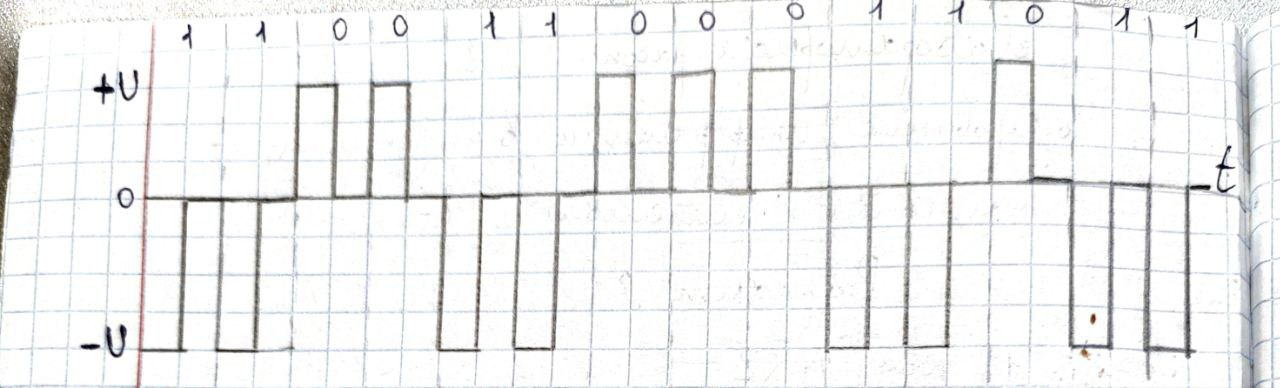 1 1 0 0 1 1 0 0 0 1 1 0 1 1
+U
0
t
-U